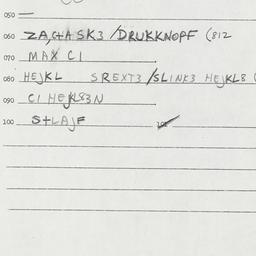 050
060 ZA,C+A SK3 /DRUKKNOPF (812
070 MAX C1
080 HEJKL SREXT3 /SLINK3 HEJKL8 (
090 C1 HEJKL83N
100 S+LAJF